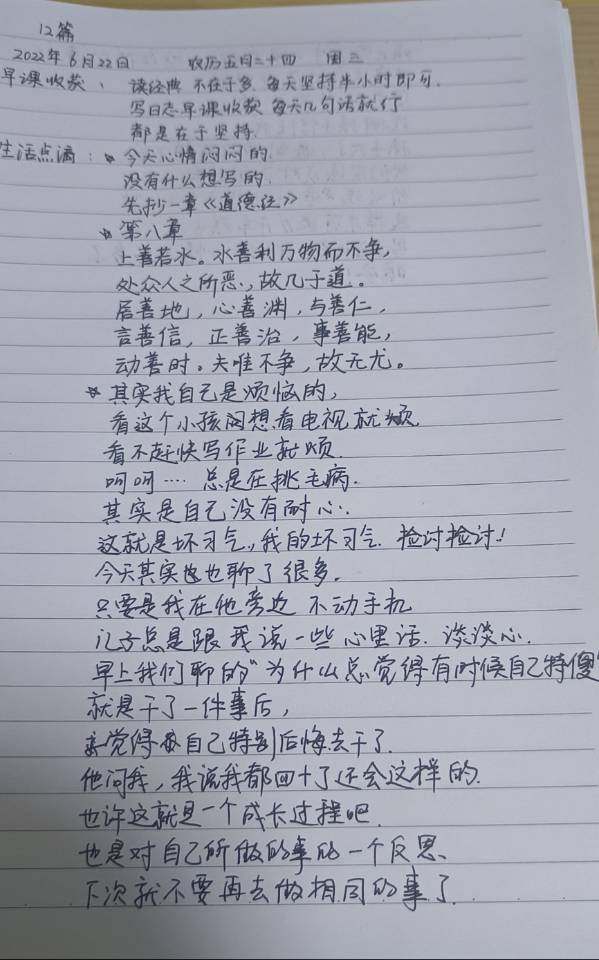 12篇
2022年6月22日 农历五月二十四 周三
早课收获、读经典 不在于多 每天坚持半小时即可.
写日志早课收获 每天几句话就行
都是在于坚持.
生活点滴：今天心情闷闷的
没有什么想写的.
先抄一章《道德经》
第八章
上善若水。水善利万物而不争，
处众人之所恶，故几于道。
居善地，心善渊，与善仁，
言善信，正善治，事善能，
动善时。夫唯不争，故无尤。
其实我自己是烦恼的，
看这个小孩闷想看电视就烦
看不赶快写作业就烦.
呵呵…. 总是在挑毛病.
其实是自己没有耐心.
这就是坏习气，我的坏习气. 检讨检讨！
今天其实也聊了很多.
只要是我在他旁边 不动手机
儿子总是跟我说一些心里话. 谈谈心.
早上我们聊的“为什么总觉得有时候自己特傻”
就是干了一件事后，
觉得自己特别后悔去干了.
他问我，我说我都四十了还会这样的.
也许这就是一个成长过程吧.
也是对自己所做的事的一个反思.
下次就不要再去做相同的事了.